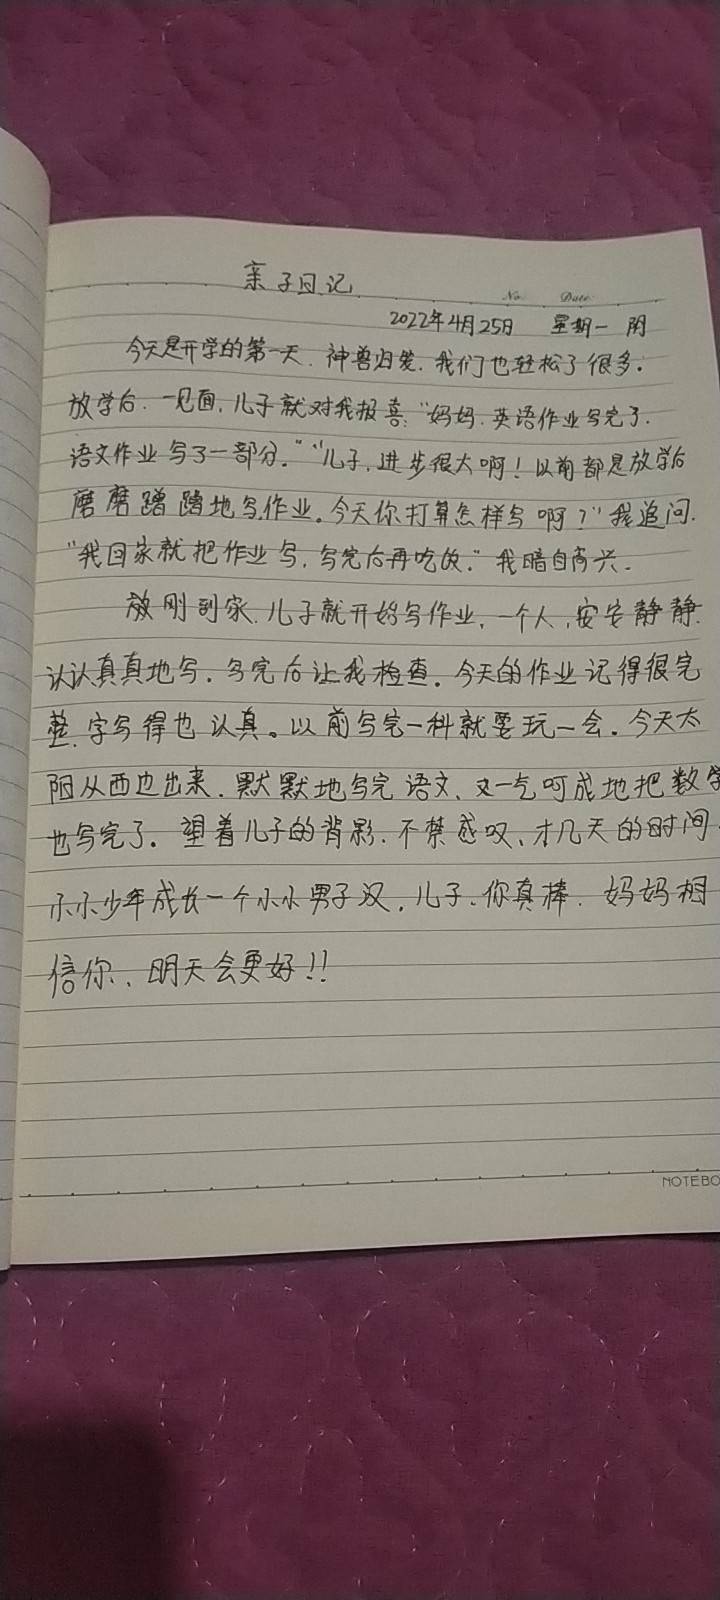 亲子日记
No. Date.
2022年4月25日 星期一 阴
今天是开学的第一天.神兽归笼.我们也轻松了很多.
放学后.一见面,儿子就对我报喜:"妈妈.英语作业写完了.
语文作业写了一部分.""儿子,进步很大啊!以前都是放学后
磨磨蹭蹭地写作业。今天你打算怎样写啊?"我追问.
"我回家就把作业写,写完后再吃饭."我暗自高兴.
放刚到家.儿子就开始写作业,一个人,安安静静.
认认真真地写.写完后让我检查。今天的作业记得很完
整.字写得也认真。以前写完一科就要玩一会。今天太
阳从西边出来.默默地写完语文、又一气呵成地把数学
也写完了。望着儿子的背影.不禁感叹、才几天的时间.
小小少年成长一个小小男子汉,儿子、你真棒.妈妈相
信你、明天会更好!!
NOTEBO